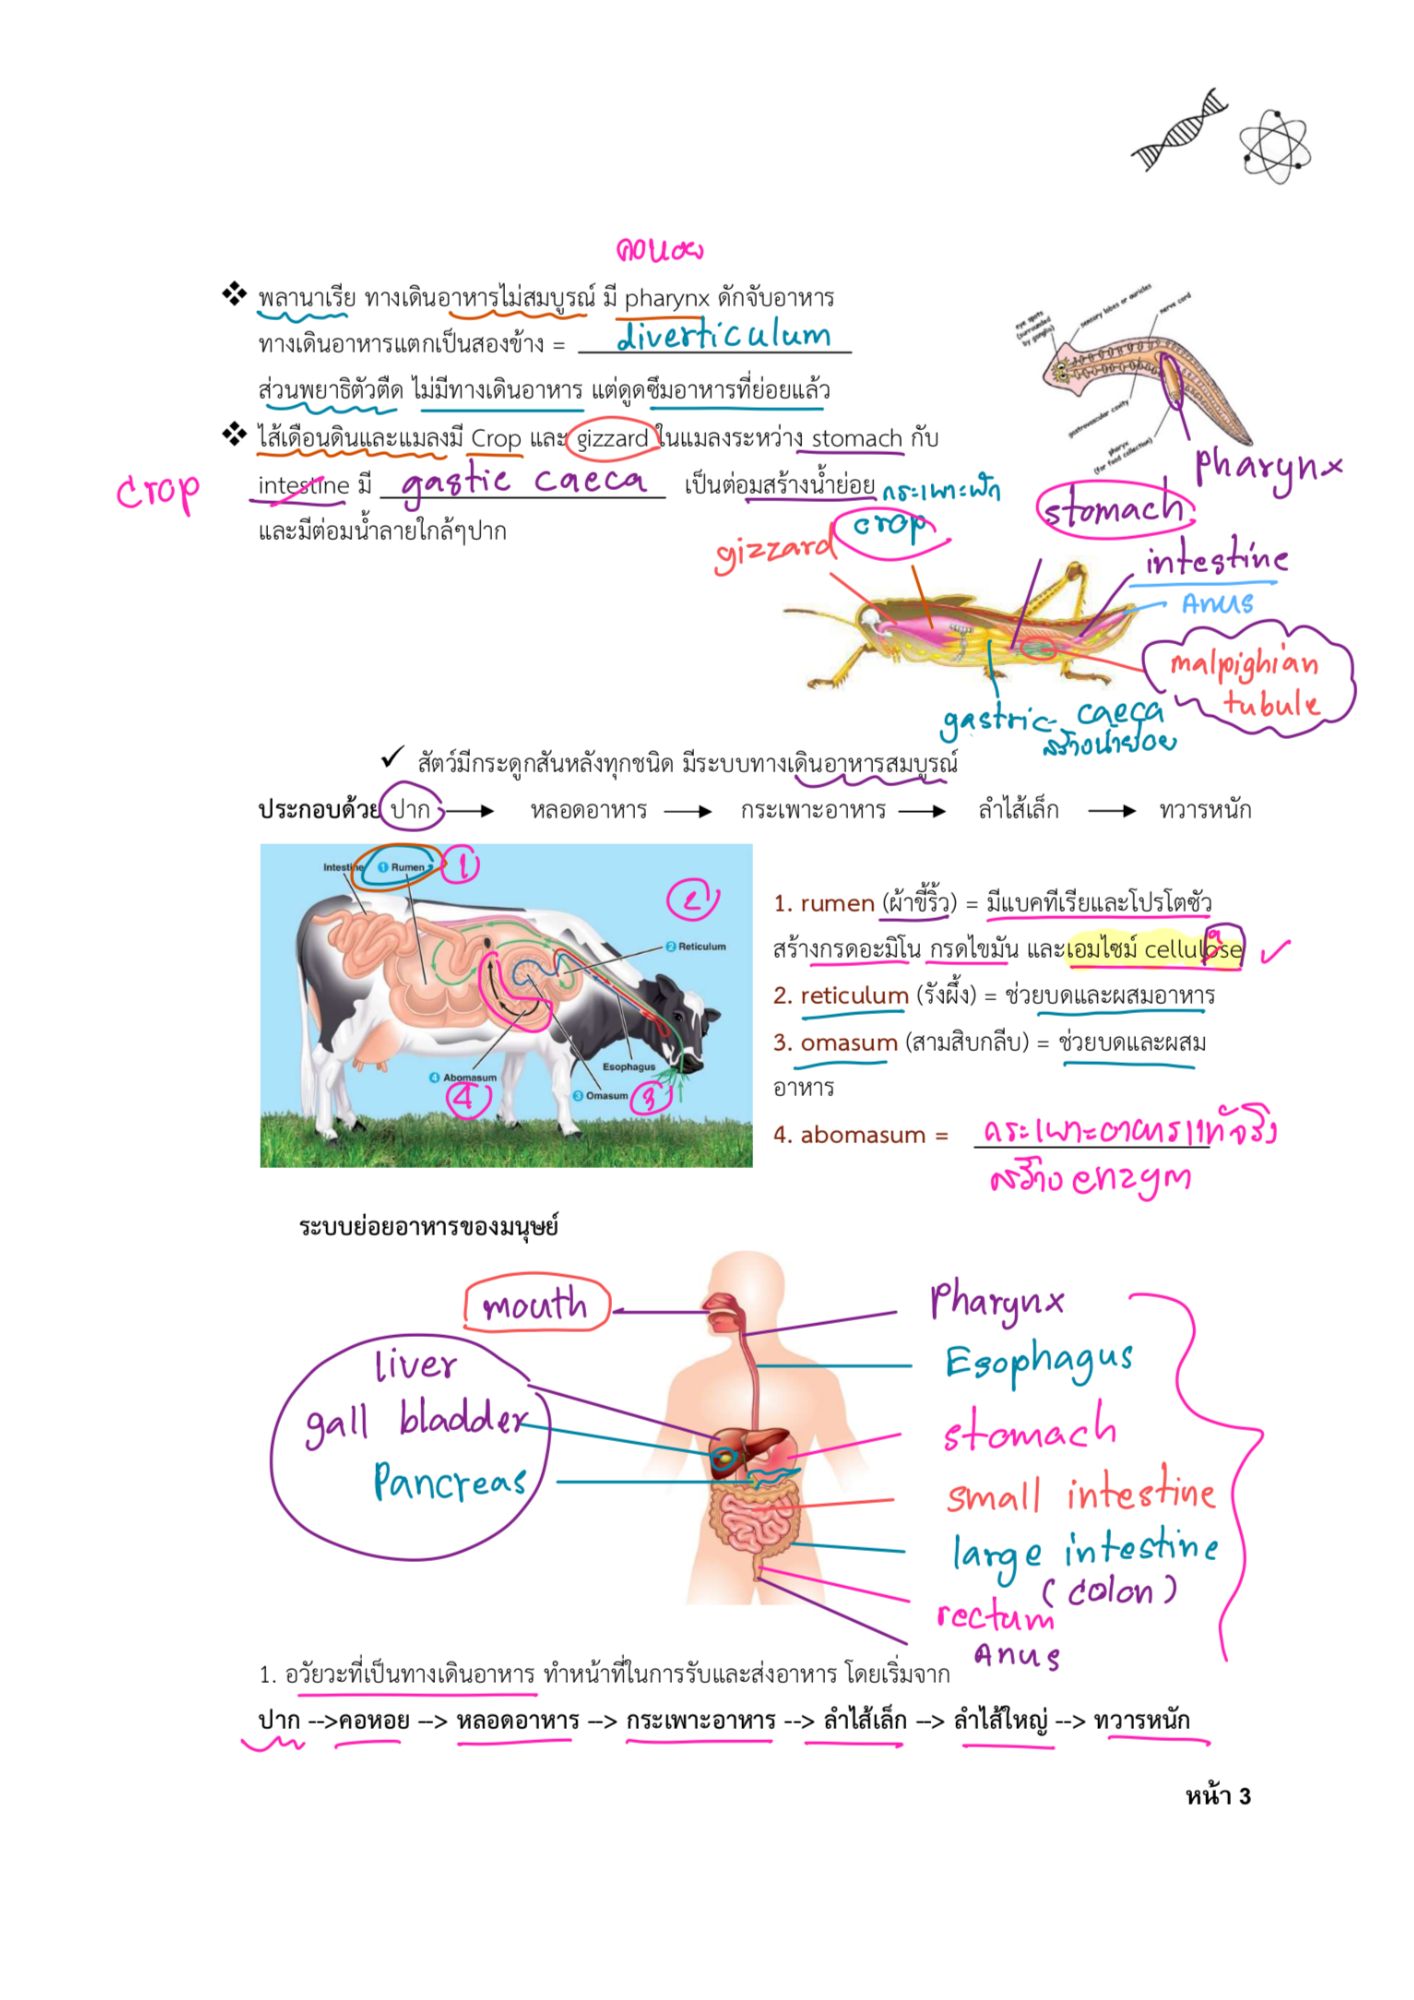 คอหอย
❖ พลานาเรีย ทางเดินอาหารไม่สมบูรณ์ มี pharynx ดักจับอาหาร
ทางเดินอาหารแตกเป็นสองข้าง = diverticulum
ส่วนพยาธิตัวตืด ไม่มีทางเดินอาหาร แต่ดูดซึมอาหารที่ย่อยแล้ว
eye spots (surrounded by ganglia)
sensory lobes or auricles
nerve cord
gastrovascular cavity
pharynx (for food collection)
pharynx
❖ ไส้เดือนดินและแมลงมี Crop และ gizzard ในแมลงระหว่าง stomach กับ
crop
intestine มี gastic caeca เป็นต่อมสร้างน้ำย่อย
และมีต่อมน้ำลายใกล้ๆปาก
กระเพาะพัก
crop
gizzard
stomach
intestine
Anus
malpighian
tubule
gastric caeca
สร้างน้ำย่อย
✓ สัตว์มีกระดูกสันหลังทุกชนิด มีระบบทางเดินอาหารสมบูรณ์
ประกอบด้วย ปาก → หลอดอาหาร → กระเพาะอาหาร → ลำไส้เล็ก → ทวารหนัก
Intestine
1 Rumen
1
2
2 Reticulum
Esophagus
4 Abomasum
4
3 Omasum
3
1. rumen (ผ้าขี้ริ้ว) = มีแบคทีเรียและโปรโตซัว
สร้างกรดอะมิโน กรดไขมัน และเอมไซม์ cellulose
a
2. reticulum (รังผึ้ง) = ช่วยบดและผสมอาหาร
3. omasum (สามสิบกลีบ) = ช่วยบดและผสม
อาหาร
4. abomasum = กระเพาะอาหารแท้จริง
สร้าง enzym
ระบบย่อยอาหารของมนุษย์
mouth
liver
gall bladder
Pancreas
Pharynx
Esophagus
stomach
small intestine
large intestine
(colon)
rectum
Anus
1. อวัยวะที่เป็นทางเดินอาหาร ทำหน้าที่ในการรับและส่งอาหาร โดยเริ่มจาก
ปาก -->คอหอย --> หลอดอาหาร --> กระเพาะอาหาร --> ลำไส้เล็ก --> ลำไส้ใหญ่ --> ทวารหนัก
หน้า 3